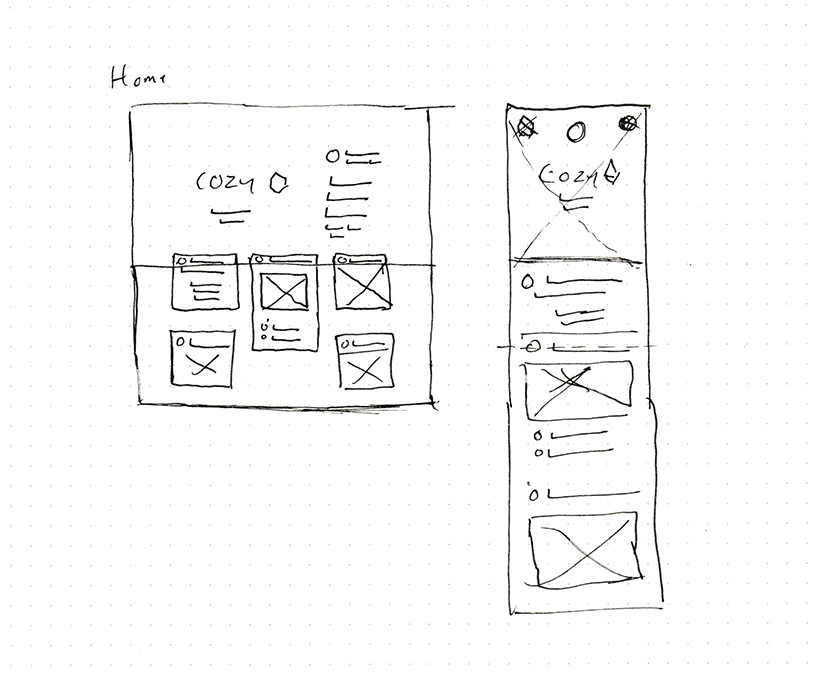 Home
COZY
COZY